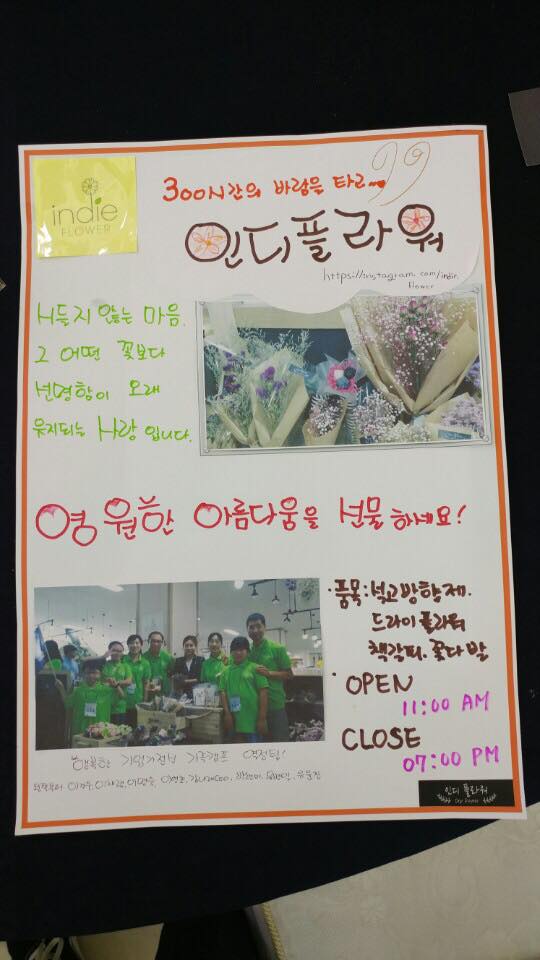 indie
FLOWER
300시간의 바람을 타고
인디플라워
https://instagram.com/indie.
flower
시들지 않는 마음.
그 어떤 꽃보다
선명함이 오래
유지되는 사랑 입니다.
영원한 아름다움을 선물하세요!
·품목: 석고방향제.
드라이플라워
책갈피. 꽃다발
·OPEN
11:00 AM
CLOSE
07:00 PM
행복한 가족캠프
인디 플라워